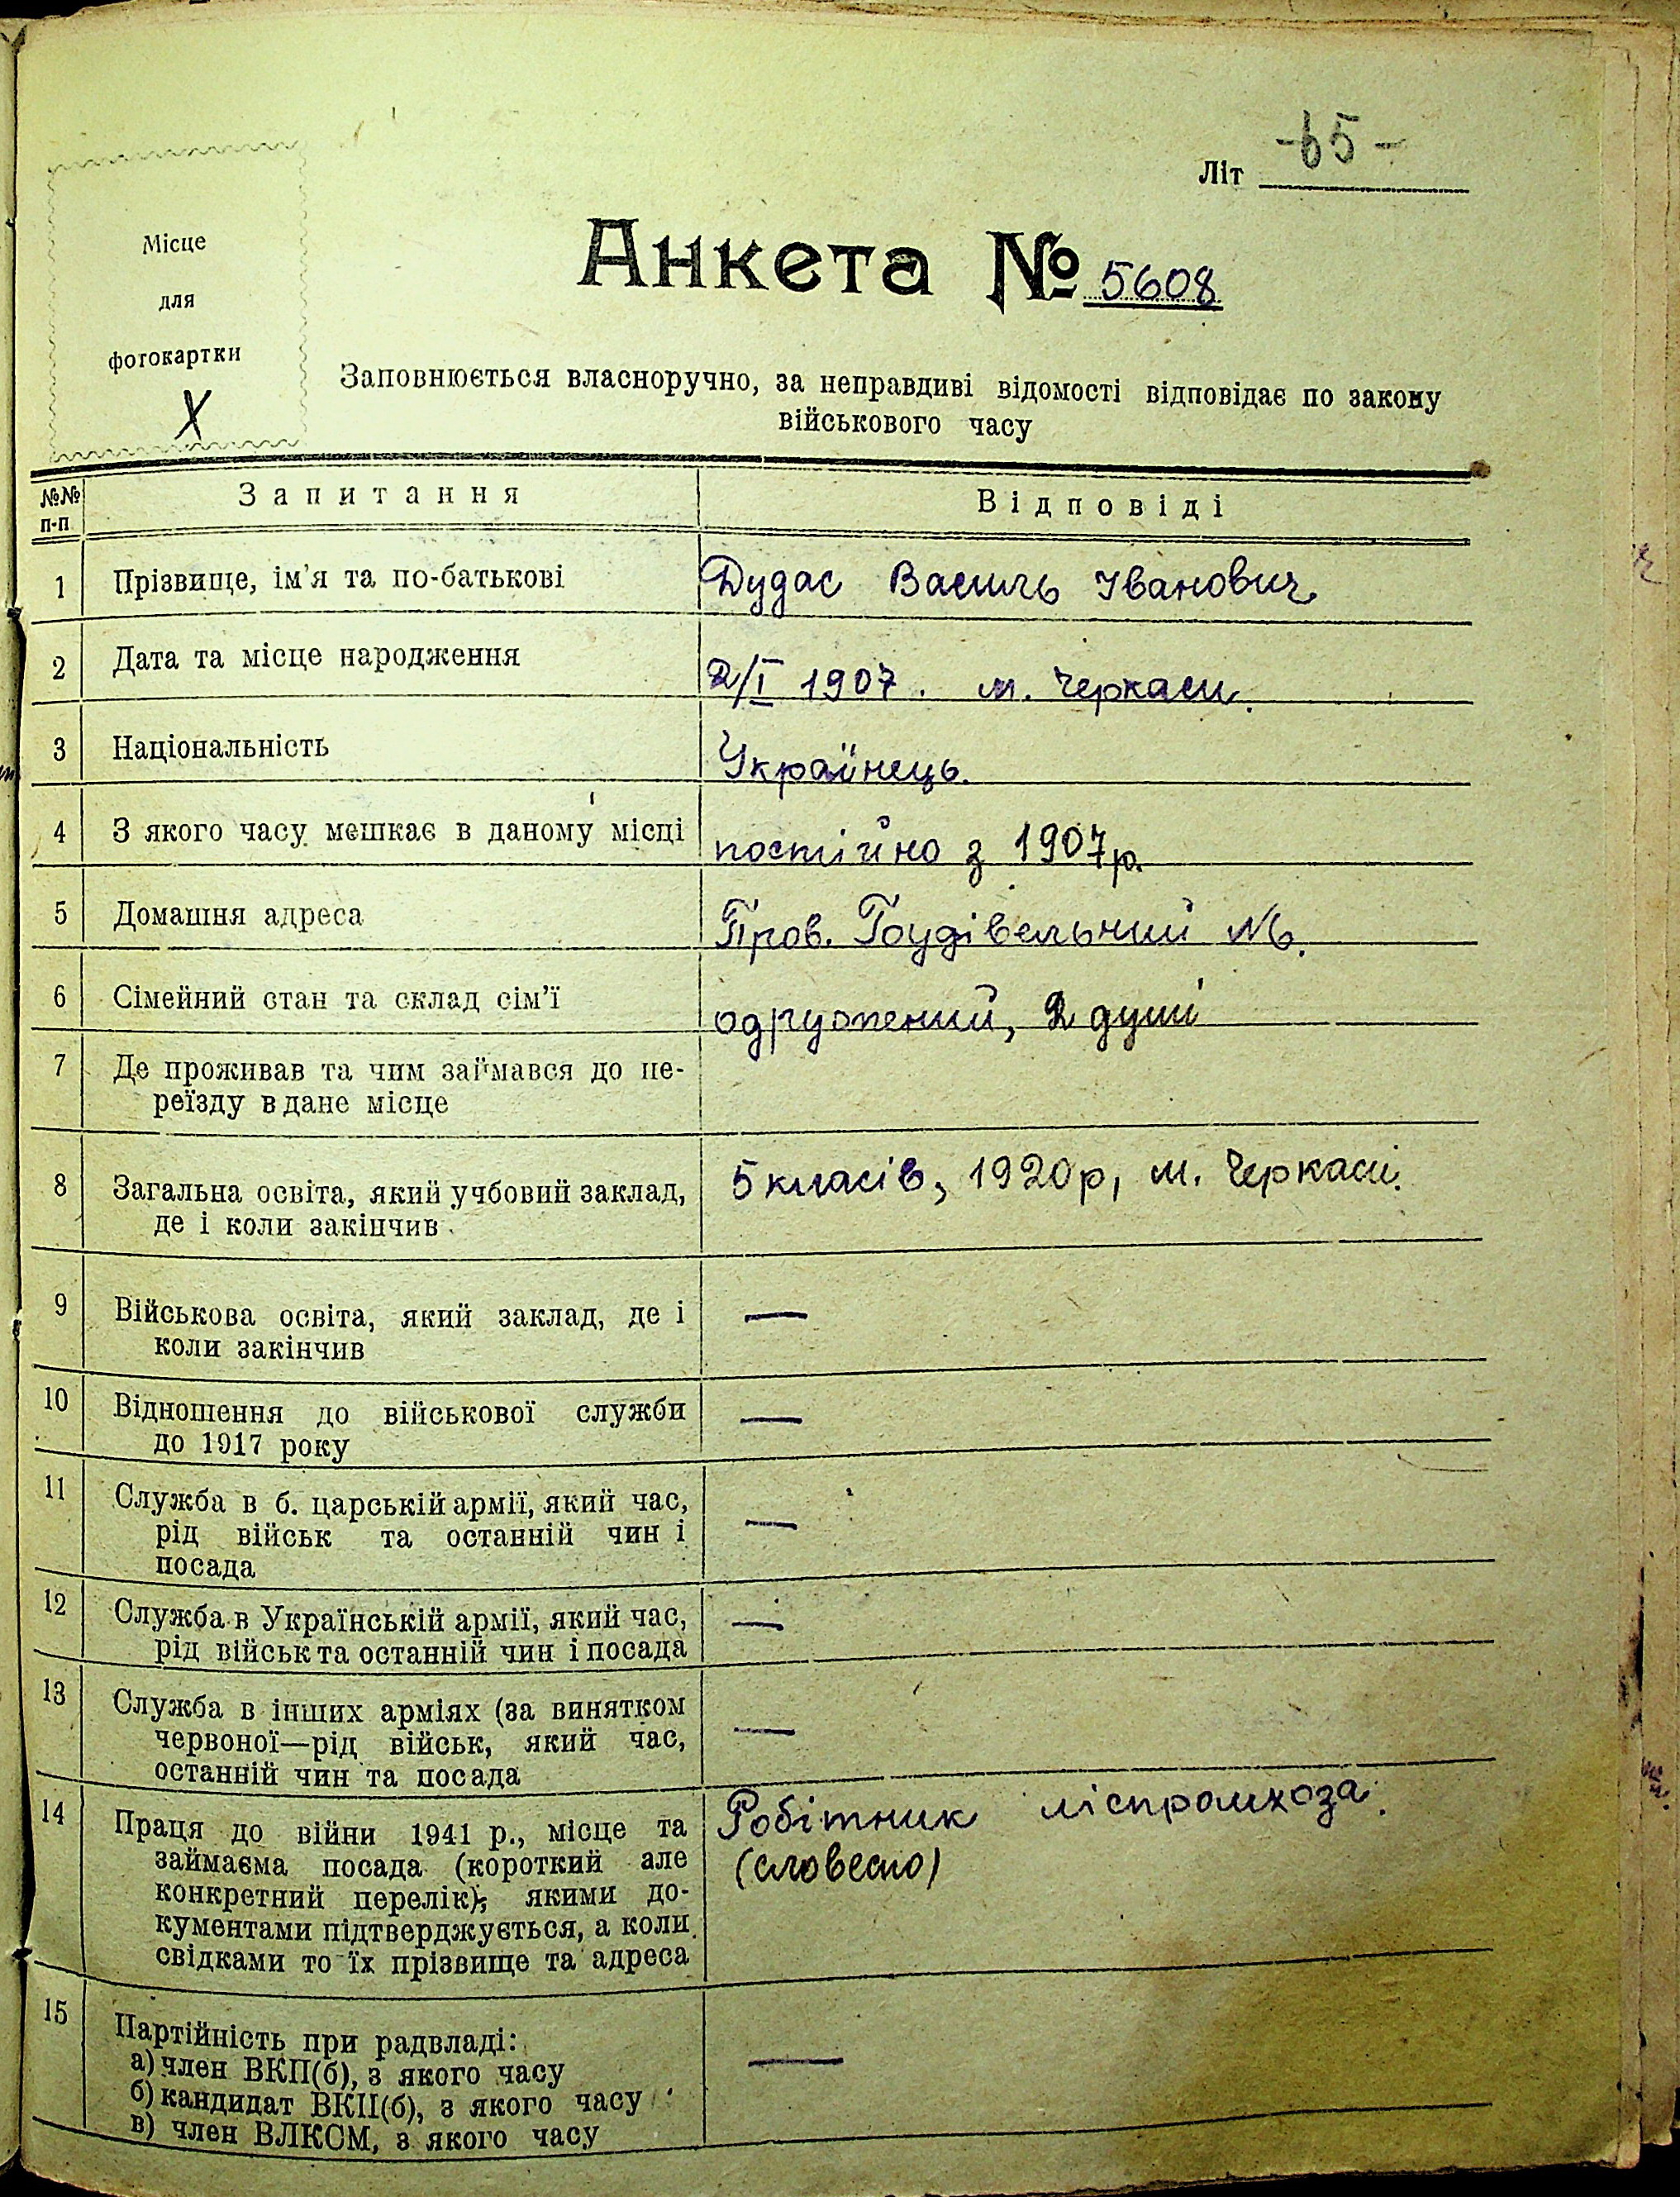 Літ -65-
Місце
для
фотокартки
X
Анкета № 5608
Заповнюється власноручно, за неправдиві відомості відповідає по закону
військового часу
№№ п-п Запитання Відповіді
1 Прізвище, ім'я та по-батькові Дудас Василь Іванович
2 Дата та місце народження 2/I 1907. м. Черкаси.
3 Національність Українець.
4 З якого часу мешкає в даному місці постійно з 1907р.
5 Домашня адреса Пров.
6 Сімейний стан та склад сім'ї одружений, 2 душі
7 Де проживав та чим займався до пе-
реїзду в дане місце
8 Загальна освіта, який учбовий заклад, 5 класів, 1920р, м. Черкаси.
де і коли закінчив
9 Військова освіта, який заклад, де і —
коли закінчив
10 Відношення до військової служби —
до 1917 року
11 Служба в б. царській армії, який час, —
рід військ та останній чин і
посада
12 Служба в Українській армії, який час, —
рід військ та останній чин і посада
13 Служба в інших арміях (за винятком
червоної—рід військ, який час, —
останній чин та посада
14 Праця до війни 1941 р., місце та Робітник ліспромхоза.
займаєма посада (короткий але (словесно)
конкретний перелік), якими до-
кументами підтверджується, а коли
свідками то їх прізвище та адреса
15 Партійність при радвладі:
а) член ВКП(б), з якого часу —
б) кандидат ВКП(б), з якого часу
в) член ВЛКСМ, з якого часу